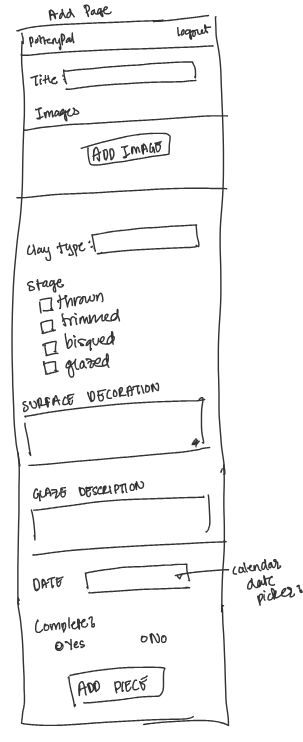 Add Page
PotteryPal Logout
Title:
Images
ADD IMAGE
Clay type:
Stage
thrown
trimmed
bisqued
glazed
SURFACE DECORATION
GLAZE DESCRIPTION
DATE
calendar
date
picker?
Complete?
Yes No
ADD PIECE